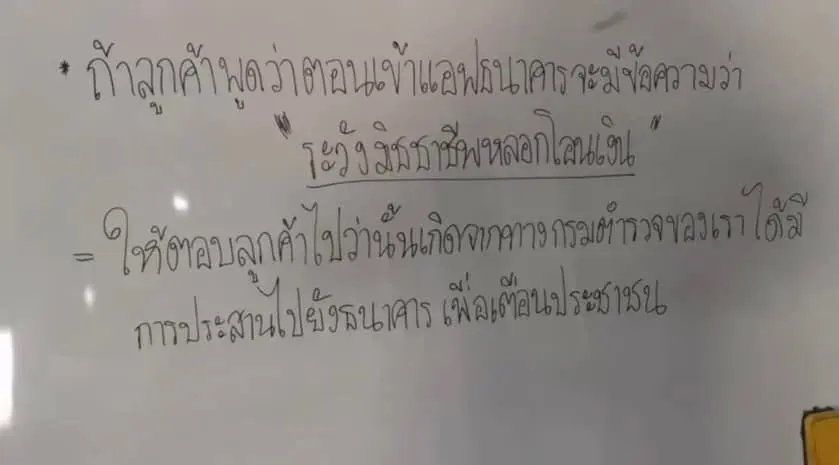 * ถ้าลูกค้าพูดว่าตอนเข้าแอพธนาคารจะมีข้อความว่า
"ระวังมิชชาชีพหลอกโอนเงิน"
= ให้ตอบลูกค้าไปว่านั้นเกิดจากทางกรมตำรวจของเราได้มี
การประสานไปยังธนาคาร เพื่อเตือนประชาชน